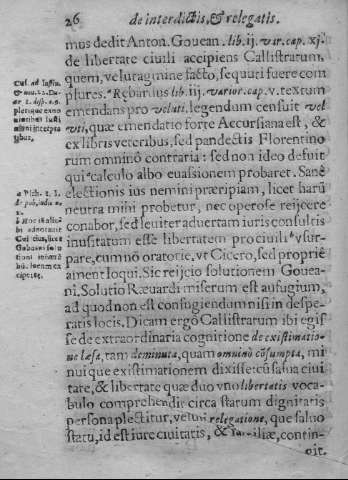 26 de interdictis, & relegatis.
mus dedit Anton. Gouean. lib. ij. var. cap. xj.
de libertate ciuili accipiens Callistratum,
quem, velut agmine facto, sequuti fuere com
plures. Ræbardus lib. iij. varior. cap. v. textum
emendans pro veluti. legendum censuit vel
vti, quæ emendatio forte Accursiana est, &
ex libris veteribus, sed pandectis Florentino
rum omninò contraria: sed non ideo defuit
qui calculo albo euasionem probaret. Sanè
electionis ius nemini præripiam, licet harũ
neutra mihi probetur, nec operose reijcere
conabor, sed leuiter aduertam iuris consultis
inusitatum esse libertatem pro ciuili vsur-
pare, cum nõ oratoriè, vt Cicero, sed propriè
ament loqui. Sic reijcio solutionem Gouea-
ni. Solutio Ræuardi miserum est aufugium,
ad quod non est confugiendum nisi in despe-
ratis locis. Dicam ergò Callistratum ibi egis
se de extraordinaria cognitione de existimatio-
ne læsa, tam deminuta, quam omninò cõsumpta, mi
nuique existimationem dixisse cũ salua ciui
tate, & libertate quæ duo vno libertatis voca-
bulo comprehendit circa statum dignitatis
persona plectitur, veluti relegatione, que saluo
statu, id est iure ciuitatis, & familiæ, contin-
git.
Cui. ad Iustin.
plerique exno
uioribus
a Plib. 1. 1.
b Hoc
bi adnotauit
Cui cius, licet
tioni
capitte.